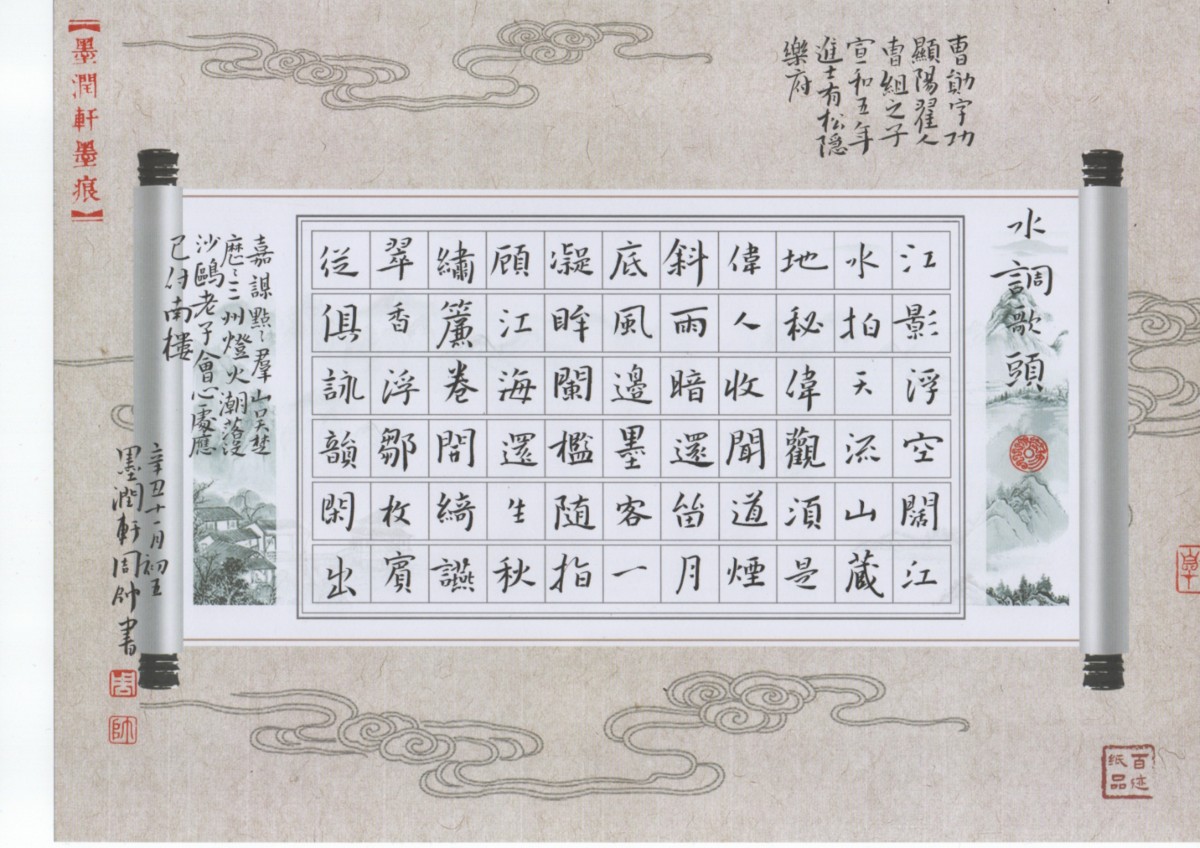 曹勛字功
顯陽翟人
曹組之子
宣和五年
進士有松隱
樂府
水調歌頭
江影浮空闊江
水拍天流山藏
地秘偉觀須是
偉人收聞道煙
斜雨暗還笛月
底風邊墨客一
凝眸闌檻隨指
顧江海還生秋
繡簾卷閒綺讌
翠香浮鄒枚賓
從俱詠韻閑出
嘉謀點〻羣山吳楚
歷〻三州燈火潮落沒
沙鷗老子會心處應
已付南樓
辛丑十一月初五
墨潤軒周帥書
周
帥
【墨潤軒墨痕】
紙品